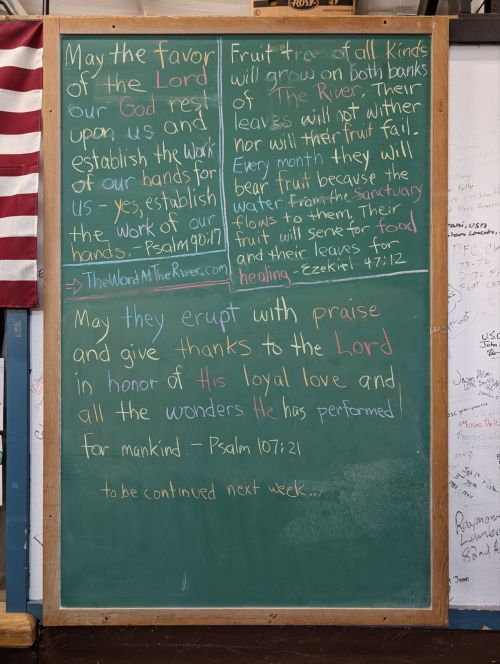 May the favor
of the Lord
our God rest
upon us and
establish the work
of our hands for
us - yes, establish
the work of our
hands. - Psalm 90:17
Fruit trees of all kinds
will grow on both banks
of The River. Their
leaves will not wither
nor will their fruit fail.
Every month they will
bear fruit because the
water from the Sanctuary
flows to them. Their
fruit will serve for food
and their leaves for
healing. - Ezekiel 47:12
TheWordAtTheRiver.com
May they erupt with praise
and give thanks to the Lord
in honor of His loyal love and
all the wonders He has performed
for mankind. - Psalm 107:21
to be continued next week...
ROSY
Raymond
82nd